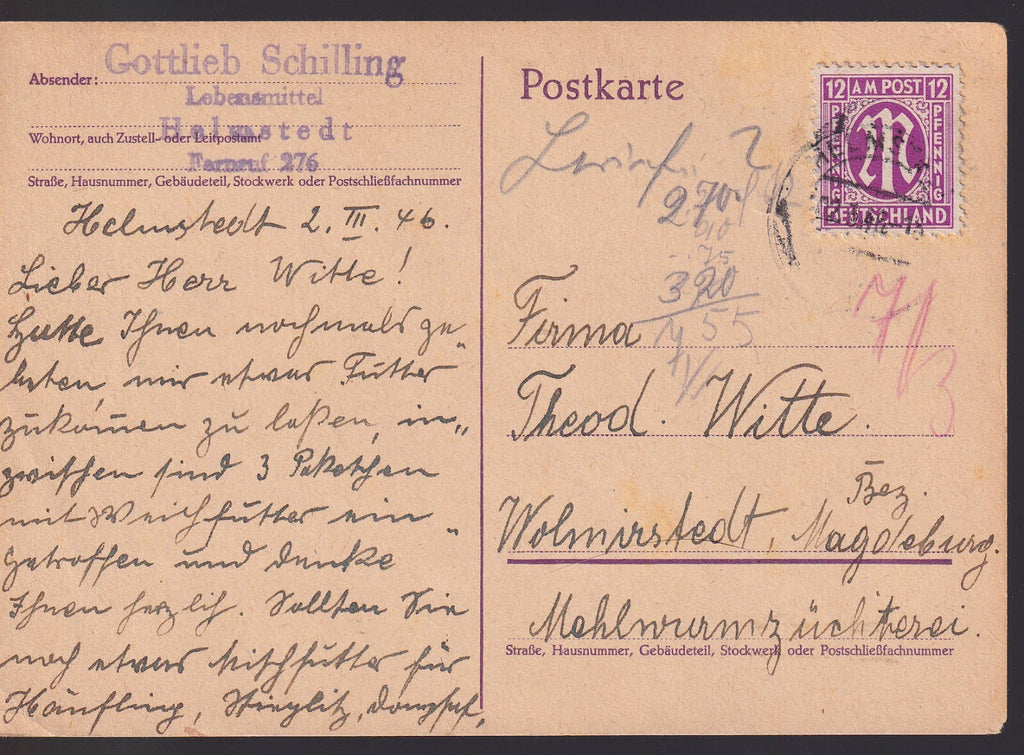 Gottlieb Schilling
Absender:
Lebensmittel
Helmstedt
Wohnort, auch Zustell- oder Leitpostamt
Fernruf 276
Straße, Hausnummer, Gebäudeteil, Stockwerk oder Postschließfachnummer
Helmstedt 2. III. 46.
Lieber Herr Witte!
Hatte Ihnen nochmals ge„
beten, mir etwas Futter
zukom̄en zu laßen, in„
zwischen sind 3 Paketchen
mit Weichfutter ein„
getroffen und danke
Ihnen herzlich. Sollten Sie
noch etwas Mischfutter für
Hänfling, Stieglitz, Dompfaf,
Postkarte
12 AM POST 12
PFENNIG
PFENNIG
M
DEUTSCHLAND
270
40
75
320
7/3
Firma
Theod. Witte.
Bez.
Wolmirstedt, Magdeburg.
Mehlwurmzüchterei.
Straße, Hausnummer, Gebäudeteil, Stockwerk oder Postschließfachnummer